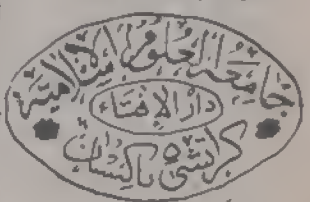 جامعة العلوم الاسلامية
دار الإفتاء
كراتشي باكستان